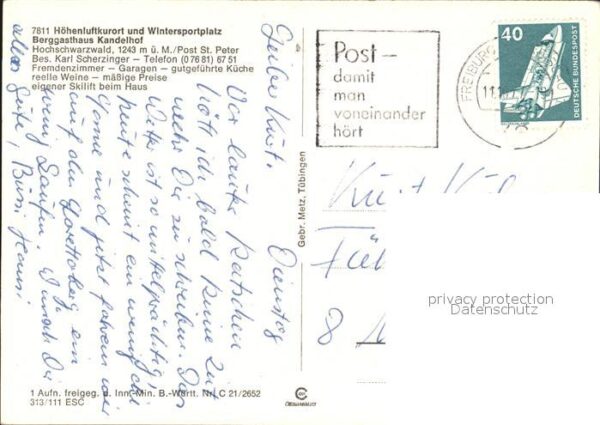 7811 Höhenluftkurort und Wintersportplatz
Berggasthaus Kandelhof
Hochschwarzwald, 1243 m ü. M./Post St. Peter
Bes. Karl Scherzinger – Telefon (0 76 81) 67 51
Fremdenzimmer – Garagen – gutgeführte Küche
reelle Weine – mäßige Preise
eigener Skilift beim Haus
Dienstag
Lieber Kurt.
Vor lauter Ratschen
hätt ich bald keine Zeit
mehr Dir zu schreiben. Das
Wetter ist so mittelprächtig!
heute scheint ein wenig die
Sonne und jetzt fahren wir
auf den Lorettoberg ein
wenig laufen.
alles Gute, Bussi Hansi
Gebr. Metz, Tübingen
Post –
damit
man
voneinander
hört
FREIBURG
40
DEUTSCHE BUNDESPOST
Kurt
8
privacy protection
Datenschutz
1 Aufn. freigeg. u. Inn.-Min. B.-Württ. Nr. C 21/2652
313/111 ESC